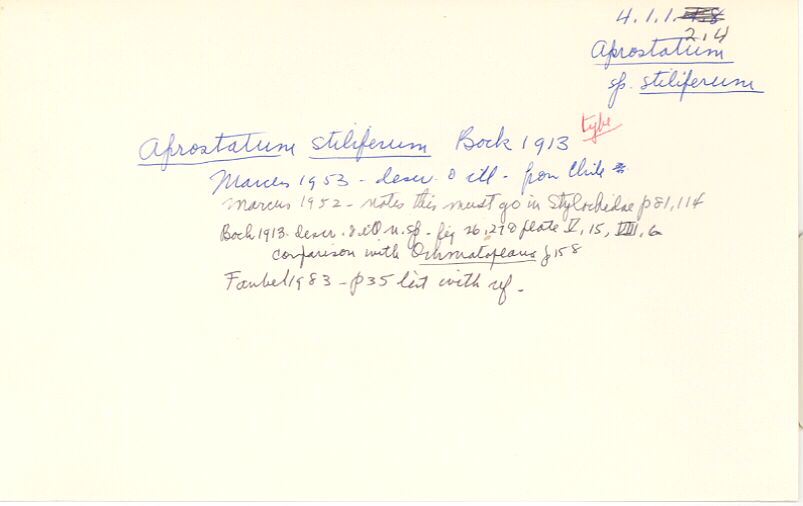 4.1.1.
2.4
Aprostatum
sp. stiliferum
type
Aprostatum stiliferum Bock 1913
Marcus 1953 - descr. & ill - from Chile
Marcus 1952 - notes this must go in Stylochidae p81,114
Bock 1913. descr. & ill n.sp - fig 26,27 & plate V, 15, VIII, 6
comparison with Ommatoplana p158
Faubel 1983 - p35 list with ref.